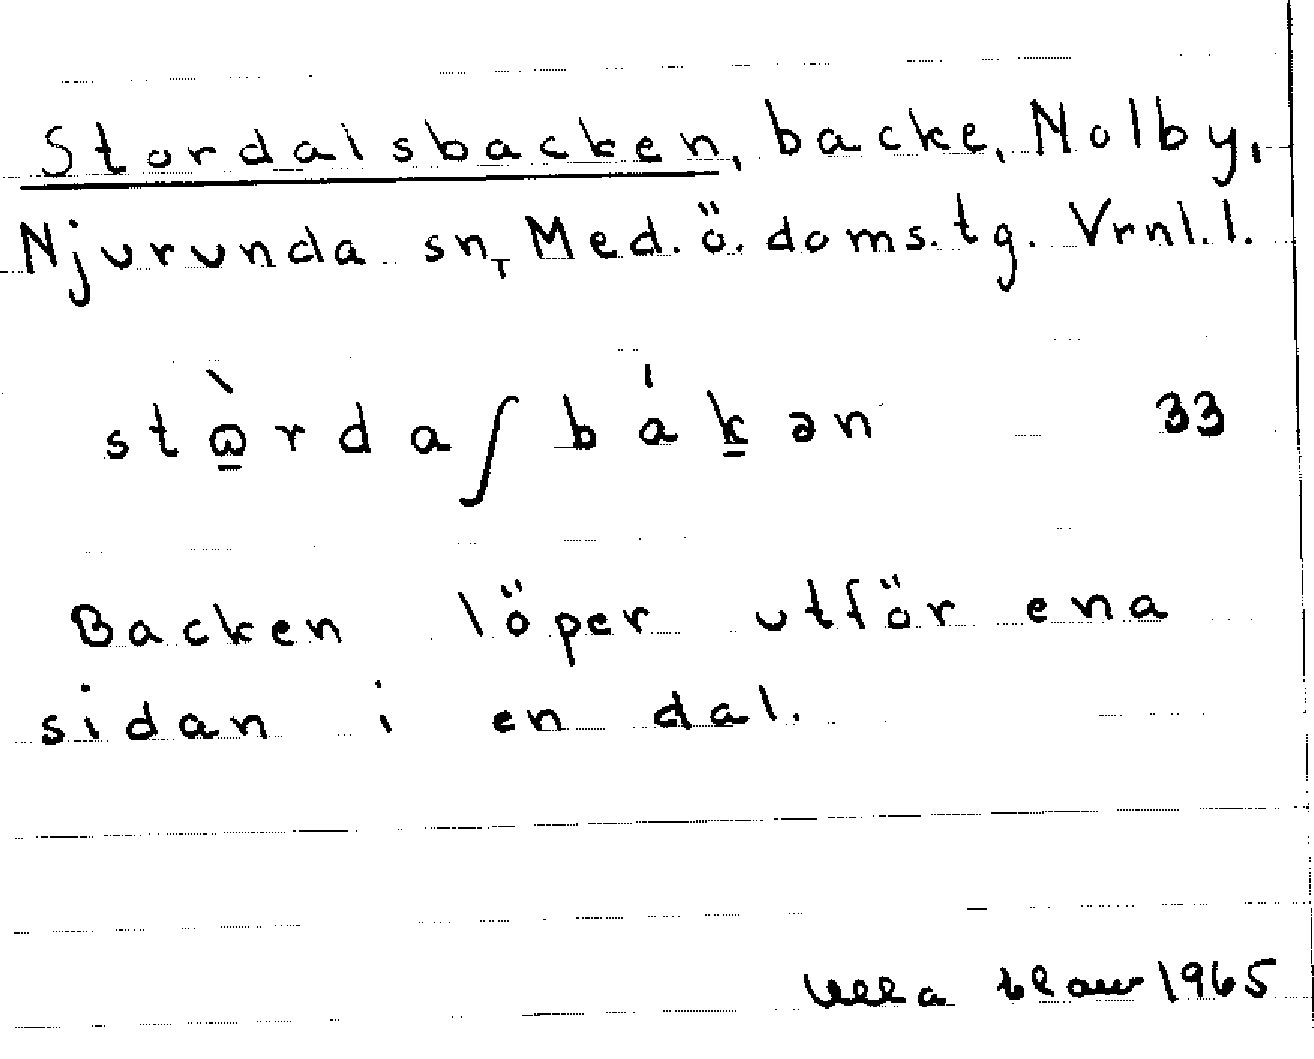 Stordalsbacken, backe, Nolby,
Njurunda sn, Med. ö. doms. tg. Vrnl. l.
33
Backen löper utför ena
sidan i en dal.
Ulla 1965